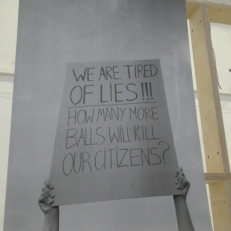 WE ARE TIRED
OF LIES!!!
HOW MANY MORE
BALLS WILL KILL
OUR CITIZENS?